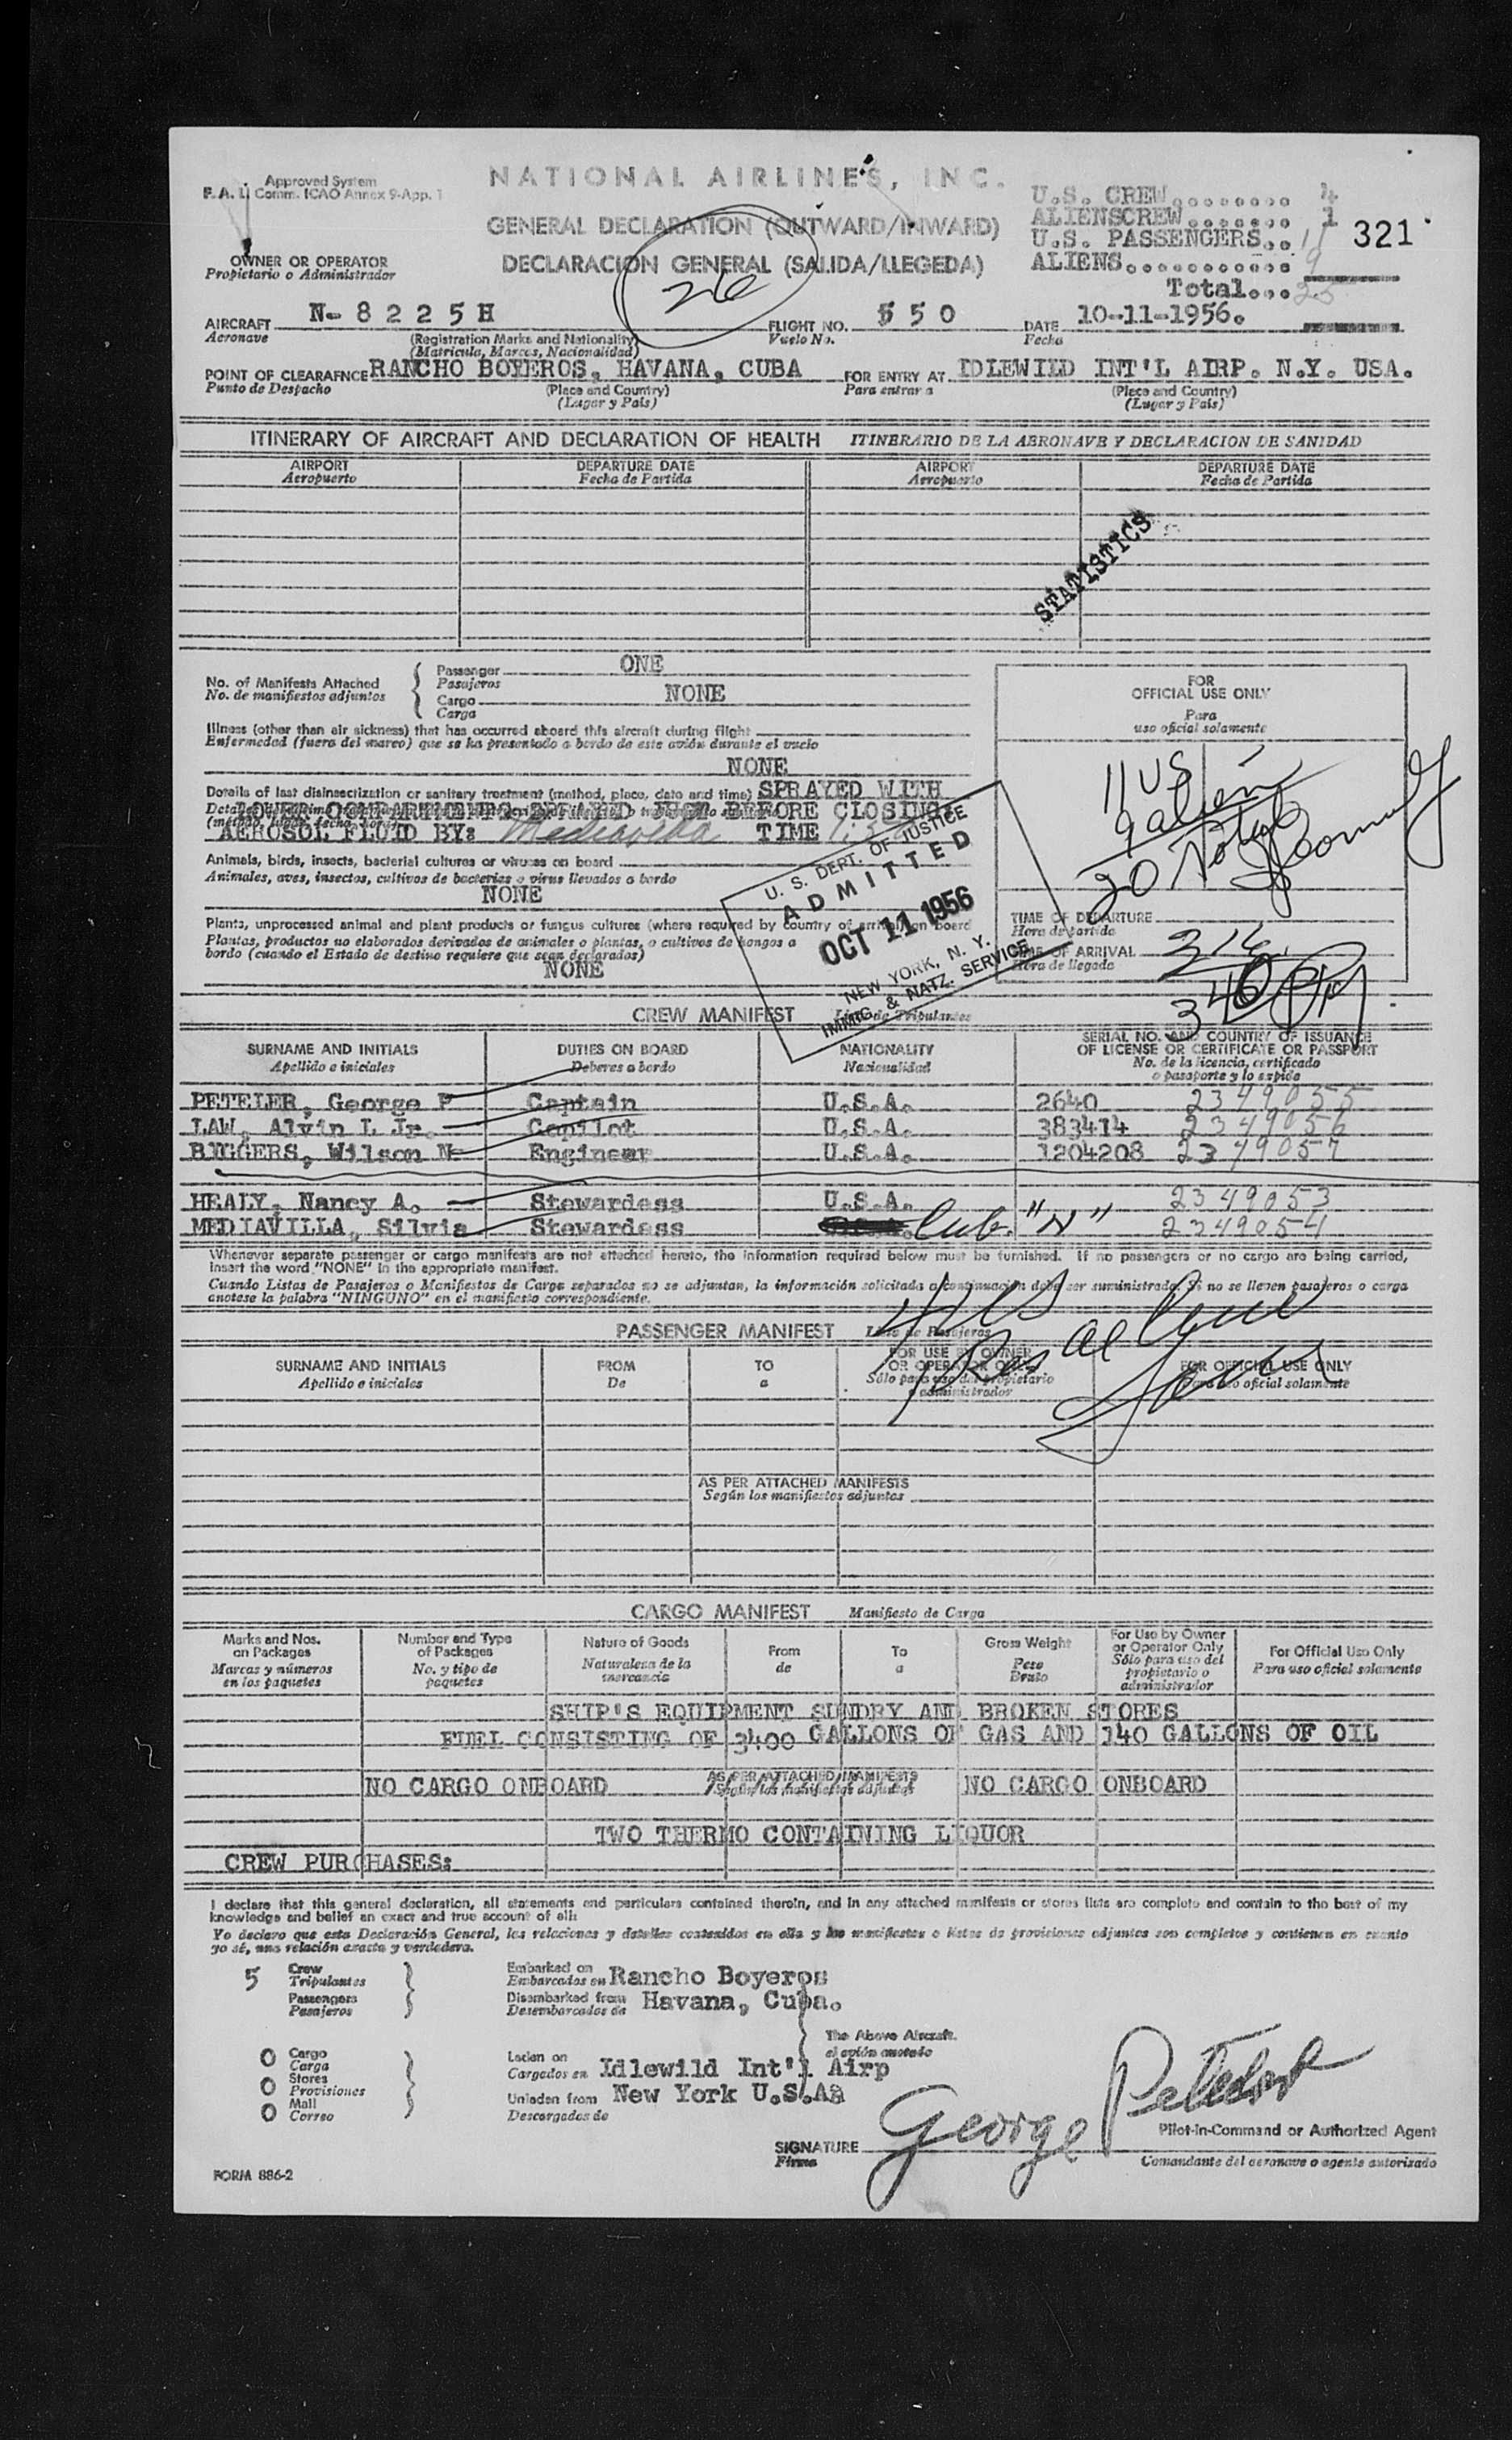 Approved System
F. A. L. Comm. ICAO Annex 9-App. 1
NATIONAL AIRLINES, INC.
GENERAL DECLARATION (OUTWARD/INWARD)
DECLARACION GENERAL (SALIDA/LLEGEDA)
26
U.S. CREW........ 4
ALIENSCREW....... 1
U.S. PASSENGERS.. 11
ALIENS........... 9
Total... 25
321
OWNER OR OPERATOR
Propietario o Administrador
AIRCRAFT N-8225H FLIGHT NO. 550 DATE 10-11-1956.
Aeronave (Registration Marks and Nationality) Vuelo No. Fecha
(Matricula, Marcas, Nacionalidad)
POINT OF CLEARAFNCE RANCHO BOYEROS, HAVANA, CUBA FOR ENTRY AT IDLEWILD INT'L AIRP. N.Y. USA.
Punto de Despacho (Place and Country) Para entrar a (Place and Country)
(Lugar y Pais) (Lugar y Pais)
ITINERARY OF AIRCRAFT AND DECLARATION OF HEALTH ITINERARIO DE LA AERONAVE Y DECLARACION DE SANIDAD
AIRPORT DEPARTURE DATE AIRPORT DEPARTURE DATE
Aeropuerto Fecha de Partida Aeropuerto Fecha de Partida
STATISTICS
No. of Manifests Attached Passenger ONE
No. de manifiestos adjuntos Pasajeros
Cargo NONE
Carga
FOR
OFFICIAL USE ONLY
Para
uso oficial solamente
11 US
9 alien
20 Total
Illness (other than air sickness) that has occurred aboard this aircraft during flight
Enfermedad (fuera del mareo) que se ha presentado a bordo de este avión durante el vuelo
NONE
Details of last disinsectization or sanitary treatment (method, place, date and time) SPRAYED WITH
LOWER COMPARTMENTS SPRAYED JUST BEFORE CLOSING
AEROSOL FLUID BY: Mediavilla TIME
Animals, birds, insects, bacterial cultures or viruses on board
Animales, aves, insectos, cultivos de bacterias o virus llevados a bordo
NONE
Plants, unprocessed animal and plant products or fungus cultures (where required by country of arrival) on board
Plantas, productos no elaborados derivados de animales o plantas, o cultivos de hongos a
bordo (cuando el Estado de destino requiere que sean declarados)
NONE
U. S. DEPT. OF JUSTICE
ADMITTED
OCT 11 1956
NEW YORK, N. Y.
IMMIG. & NATZ. SERVICE
TIME OF DEPARTURE
Hora de partida
TIME OF ARRIVAL
Hora de llegada
316
340 PM
CREW MANIFEST Lista de Tripulantes
SURNAME AND INITIALS DUTIES ON BOARD NATIONALITY SERIAL NO. AND COUNTRY OF ISSUANCE
OF LICENSE OR CERTIFICATE OR PASSPORT
Apellido e iniciales Deberes a bordo Nacionalidad No. de la licencia, certificado
o pasaporte y lo expide
PETELER, George P Captain U.S.A. 2640 2349055
LAW, Alvin L Jr. Copilot U.S.A. 383414 2349056
BIGGERS, Wilson N Engineer U.S.A. 1204208 2349057
HEALY, Nancy A. Stewardess U.S.A. 2349053
MEDIAVILLA, Silvia Stewardess Cub. "N" 2349054
Whenever separate passenger or cargo manifests are not attached hereto, the information required below must be furnished. If no passengers or no cargo are being carried,
insert the word "NONE" in the appropriate manifest.
Cuando Listas de Pasajeros o Manifiestos de Carga separados no se adjuntan, la información solicitada a continuación debe ser suministrada. Si no se lleven pasajeros o carga
anotese la palabra "NINGUNO" en el manifiesto correspondiente.
4 US
PASSENGER MANIFEST Lista de Pasajeros
SURNAME AND INITIALS FROM TO FOR USE BY OWNER
OR OPERATOR ONLY FOR OFFICIAL USE ONLY
Apellido e iniciales De a Sólo para uso del propietario
o administrador Para uso oficial solamente
AS PER ATTACHED MANIFESTS
Según los manifiestos adjuntos
CARGO MANIFEST Manifiesto de Carga
Marks and Nos.
on Packages
Marcas y números
en los paquetes
Number and Type
of Packages
No. y tipo de
paquetes
Nature of Goods
Naturaleza de la
mercancía
From
de
To
a
Gross Weight
Peso
Bruto
For Use by Owner
or Operator Only
Sólo para uso del
propietario o
administrador
For Official Use Only
Para uso oficial solamente
SHIP'S EQUIPMENT SUNDRY AND BROKEN STORES
FUEL CONSISTING OF 3400 GALLONS OF GAS AND 140 GALLONS OF OIL
AS PER ATTACHED MANIFESTS
Según los manifiestos adjuntos
NO CARGO ONBOARD NO CARGO ONBOARD
TWO THERMO CONTAINING LIQUOR
CREW PURCHASES:
I declare that this general declaration, all statements and particulars contained therein, and in any attached manifests or stores lists are complete and contain to the best of my
knowledge and belief an exact and true account of all:
Yo declaro que esta Declaración General, las relaciones y detalles contenidos en ella y los manifiestos o listas de provisiones adjuntos son completos y contienen en cuanto
yo sé, una relación exacta y verdadera.
5 Crew
Tripulantes
Passengers
Pasajeros
Embarked on
Embarcados en Rancho Boyeros
Disembarked from
Desembarcados de Havana, Cuba.
The Above Aircraft.
el avión anotado
O Cargo
Carga
O Stores
Provisiones
O Mail
Correo
Laden on
Cargados en Idlewild Int'l Airp
Unladen from New York U.S.A
Descargados de
SIGNATURE George Peteler
Firma
Pilot-in-Command or Authorized Agent
Comandante del aeronave o agente autorizado
FORM 886-2